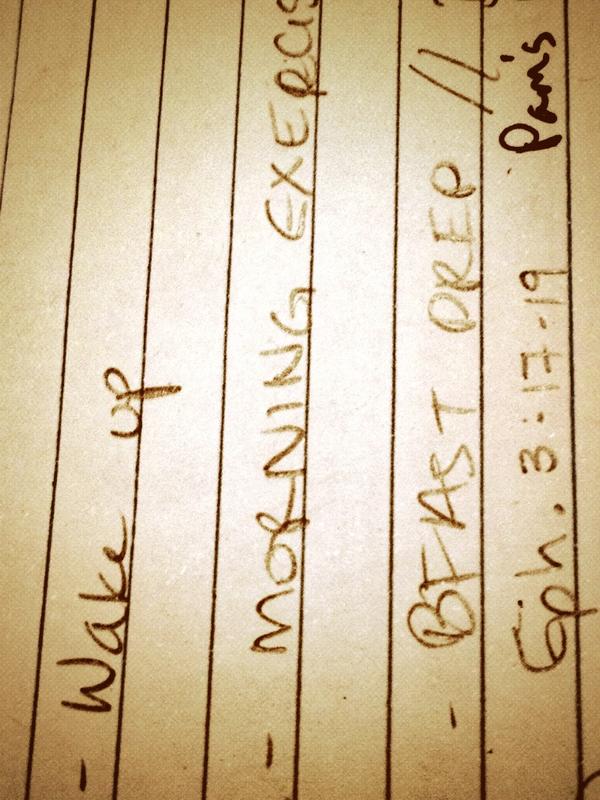 - Wake up
- MORNING EXERCIS
- BFAST PREP //
Eph. 3:17-19 Pam's